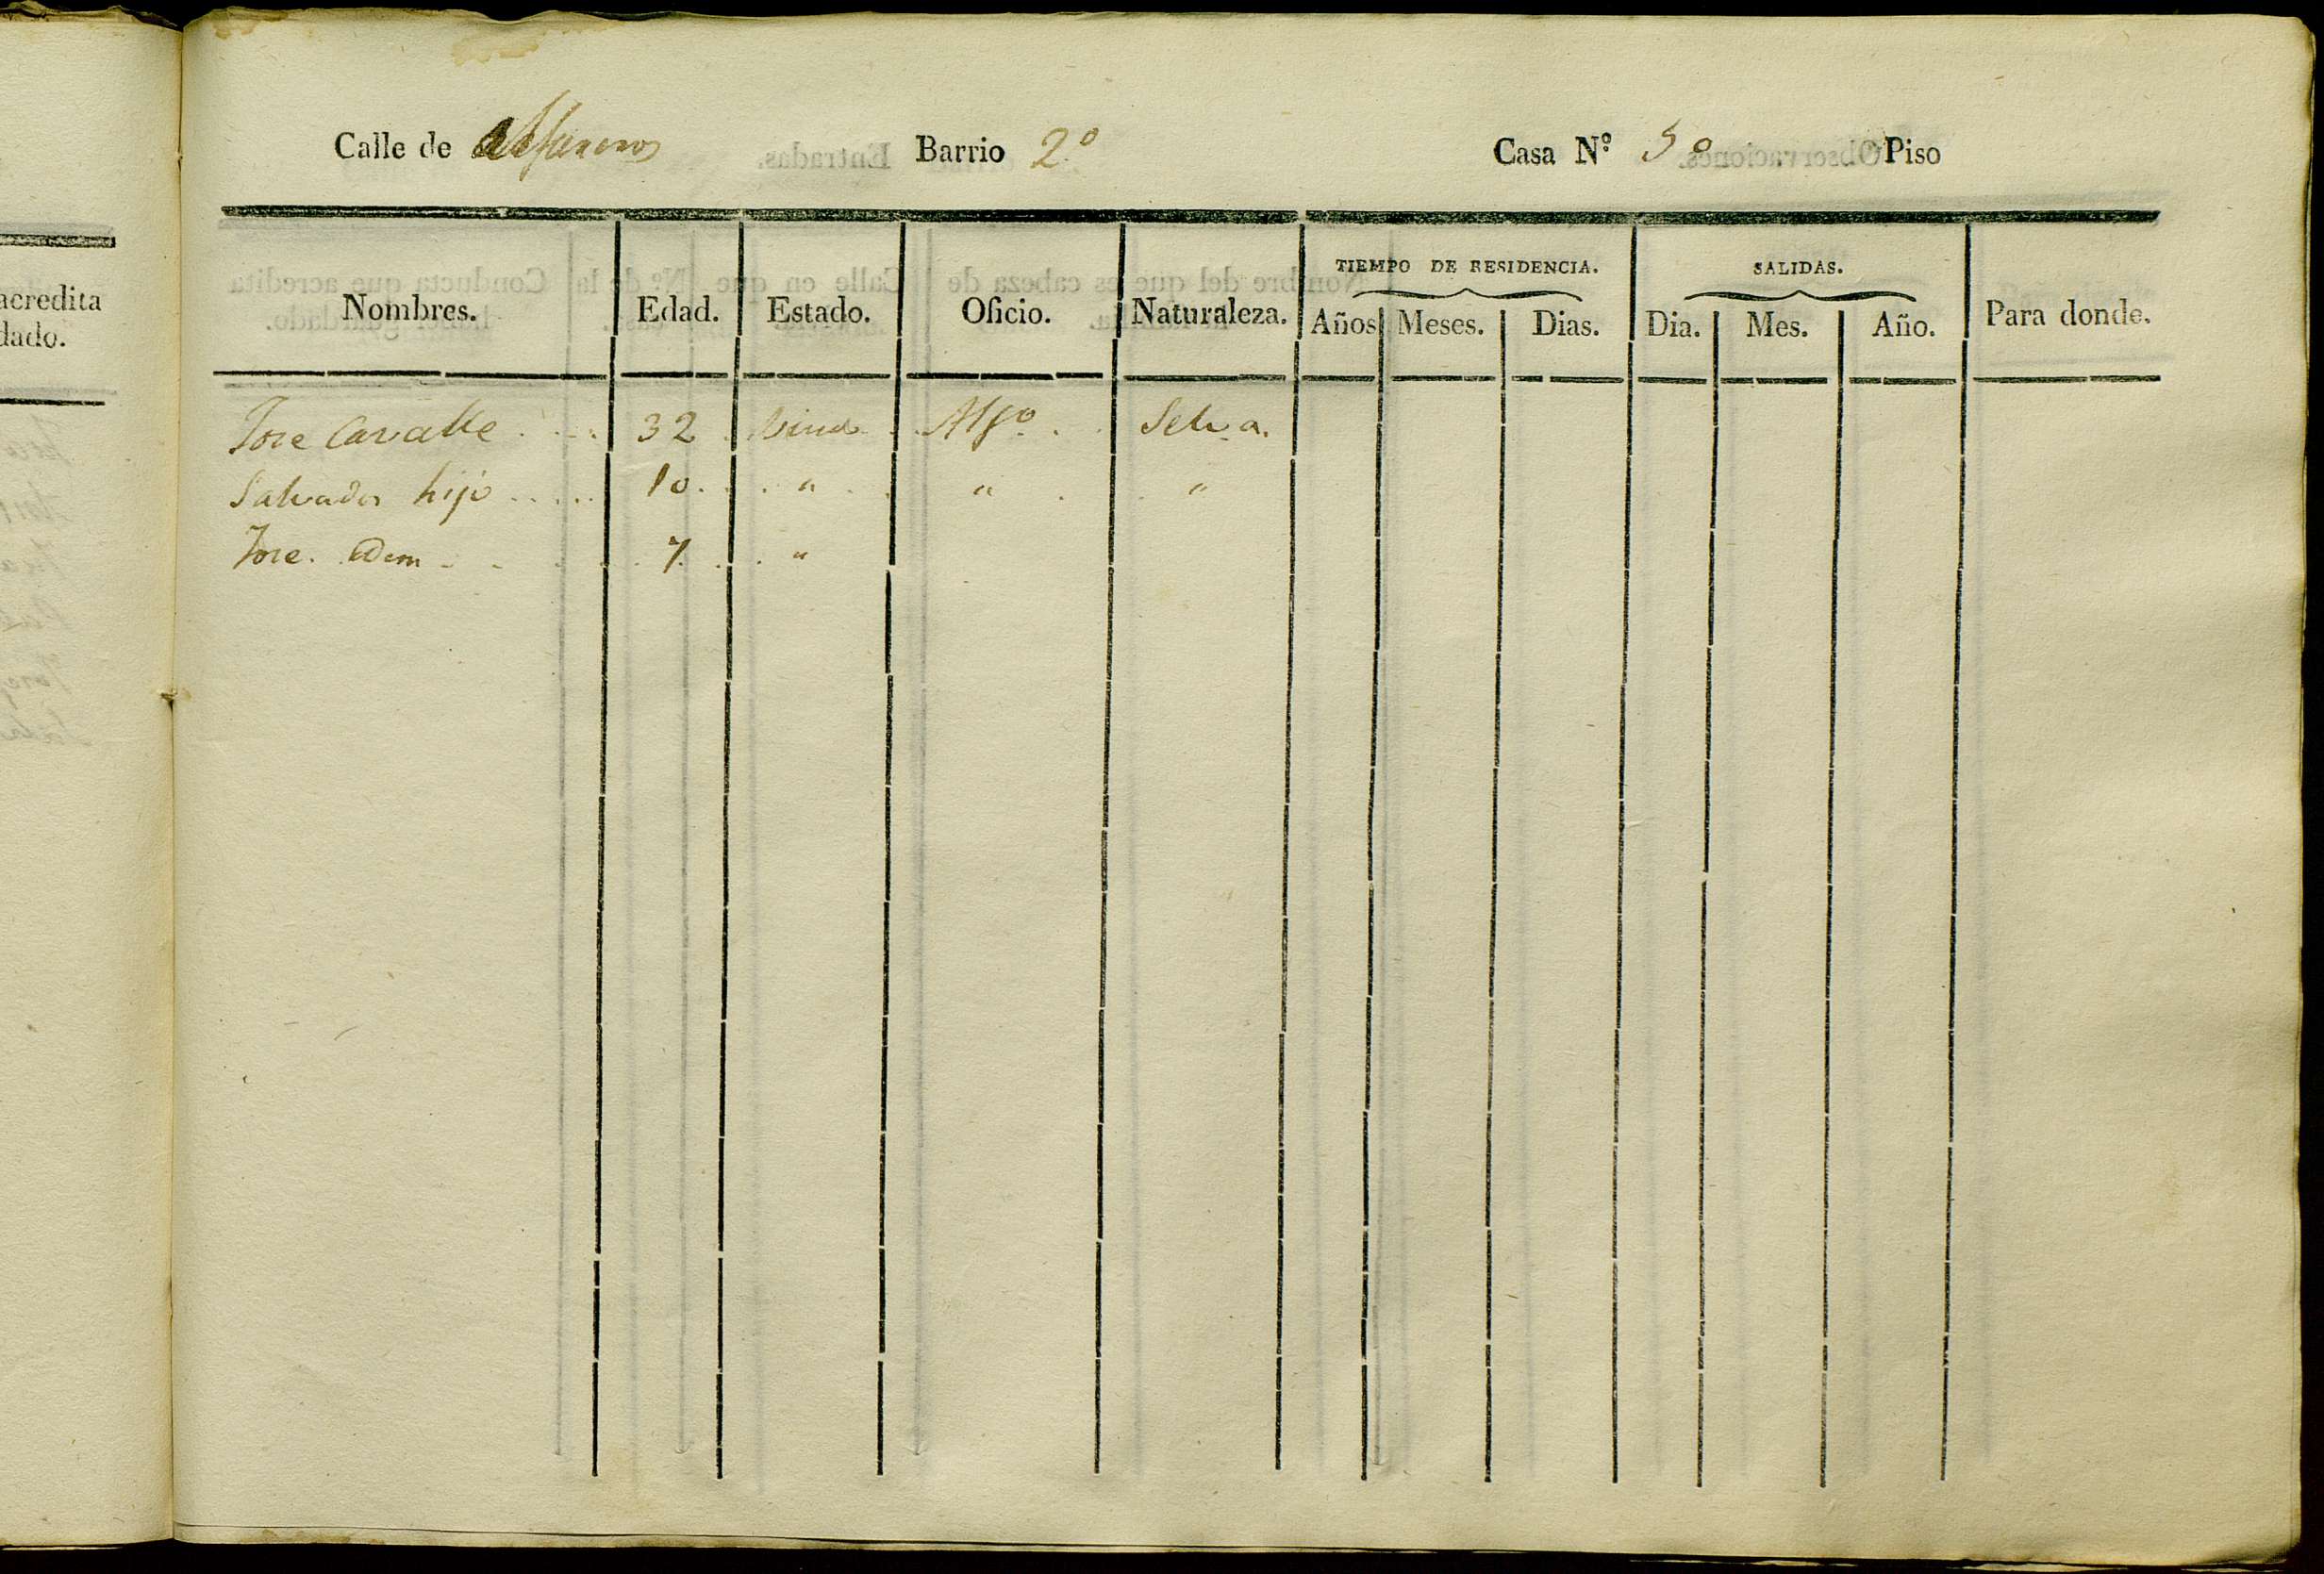 acredita
dado.
Calle de Alfareros Barrio 2º Casa Nº 5º Piso
Nombres. Edad. Estado. Oficio. Naturaleza. TIEMPO DE RESIDENCIA. Años Meses. Dias. SALIDAS. Dia. Mes. Año. Para donde.
Jose Cavalle 32 Alfº Selva.
Salvador hijo 10 " " "
Jose. idem 7. "